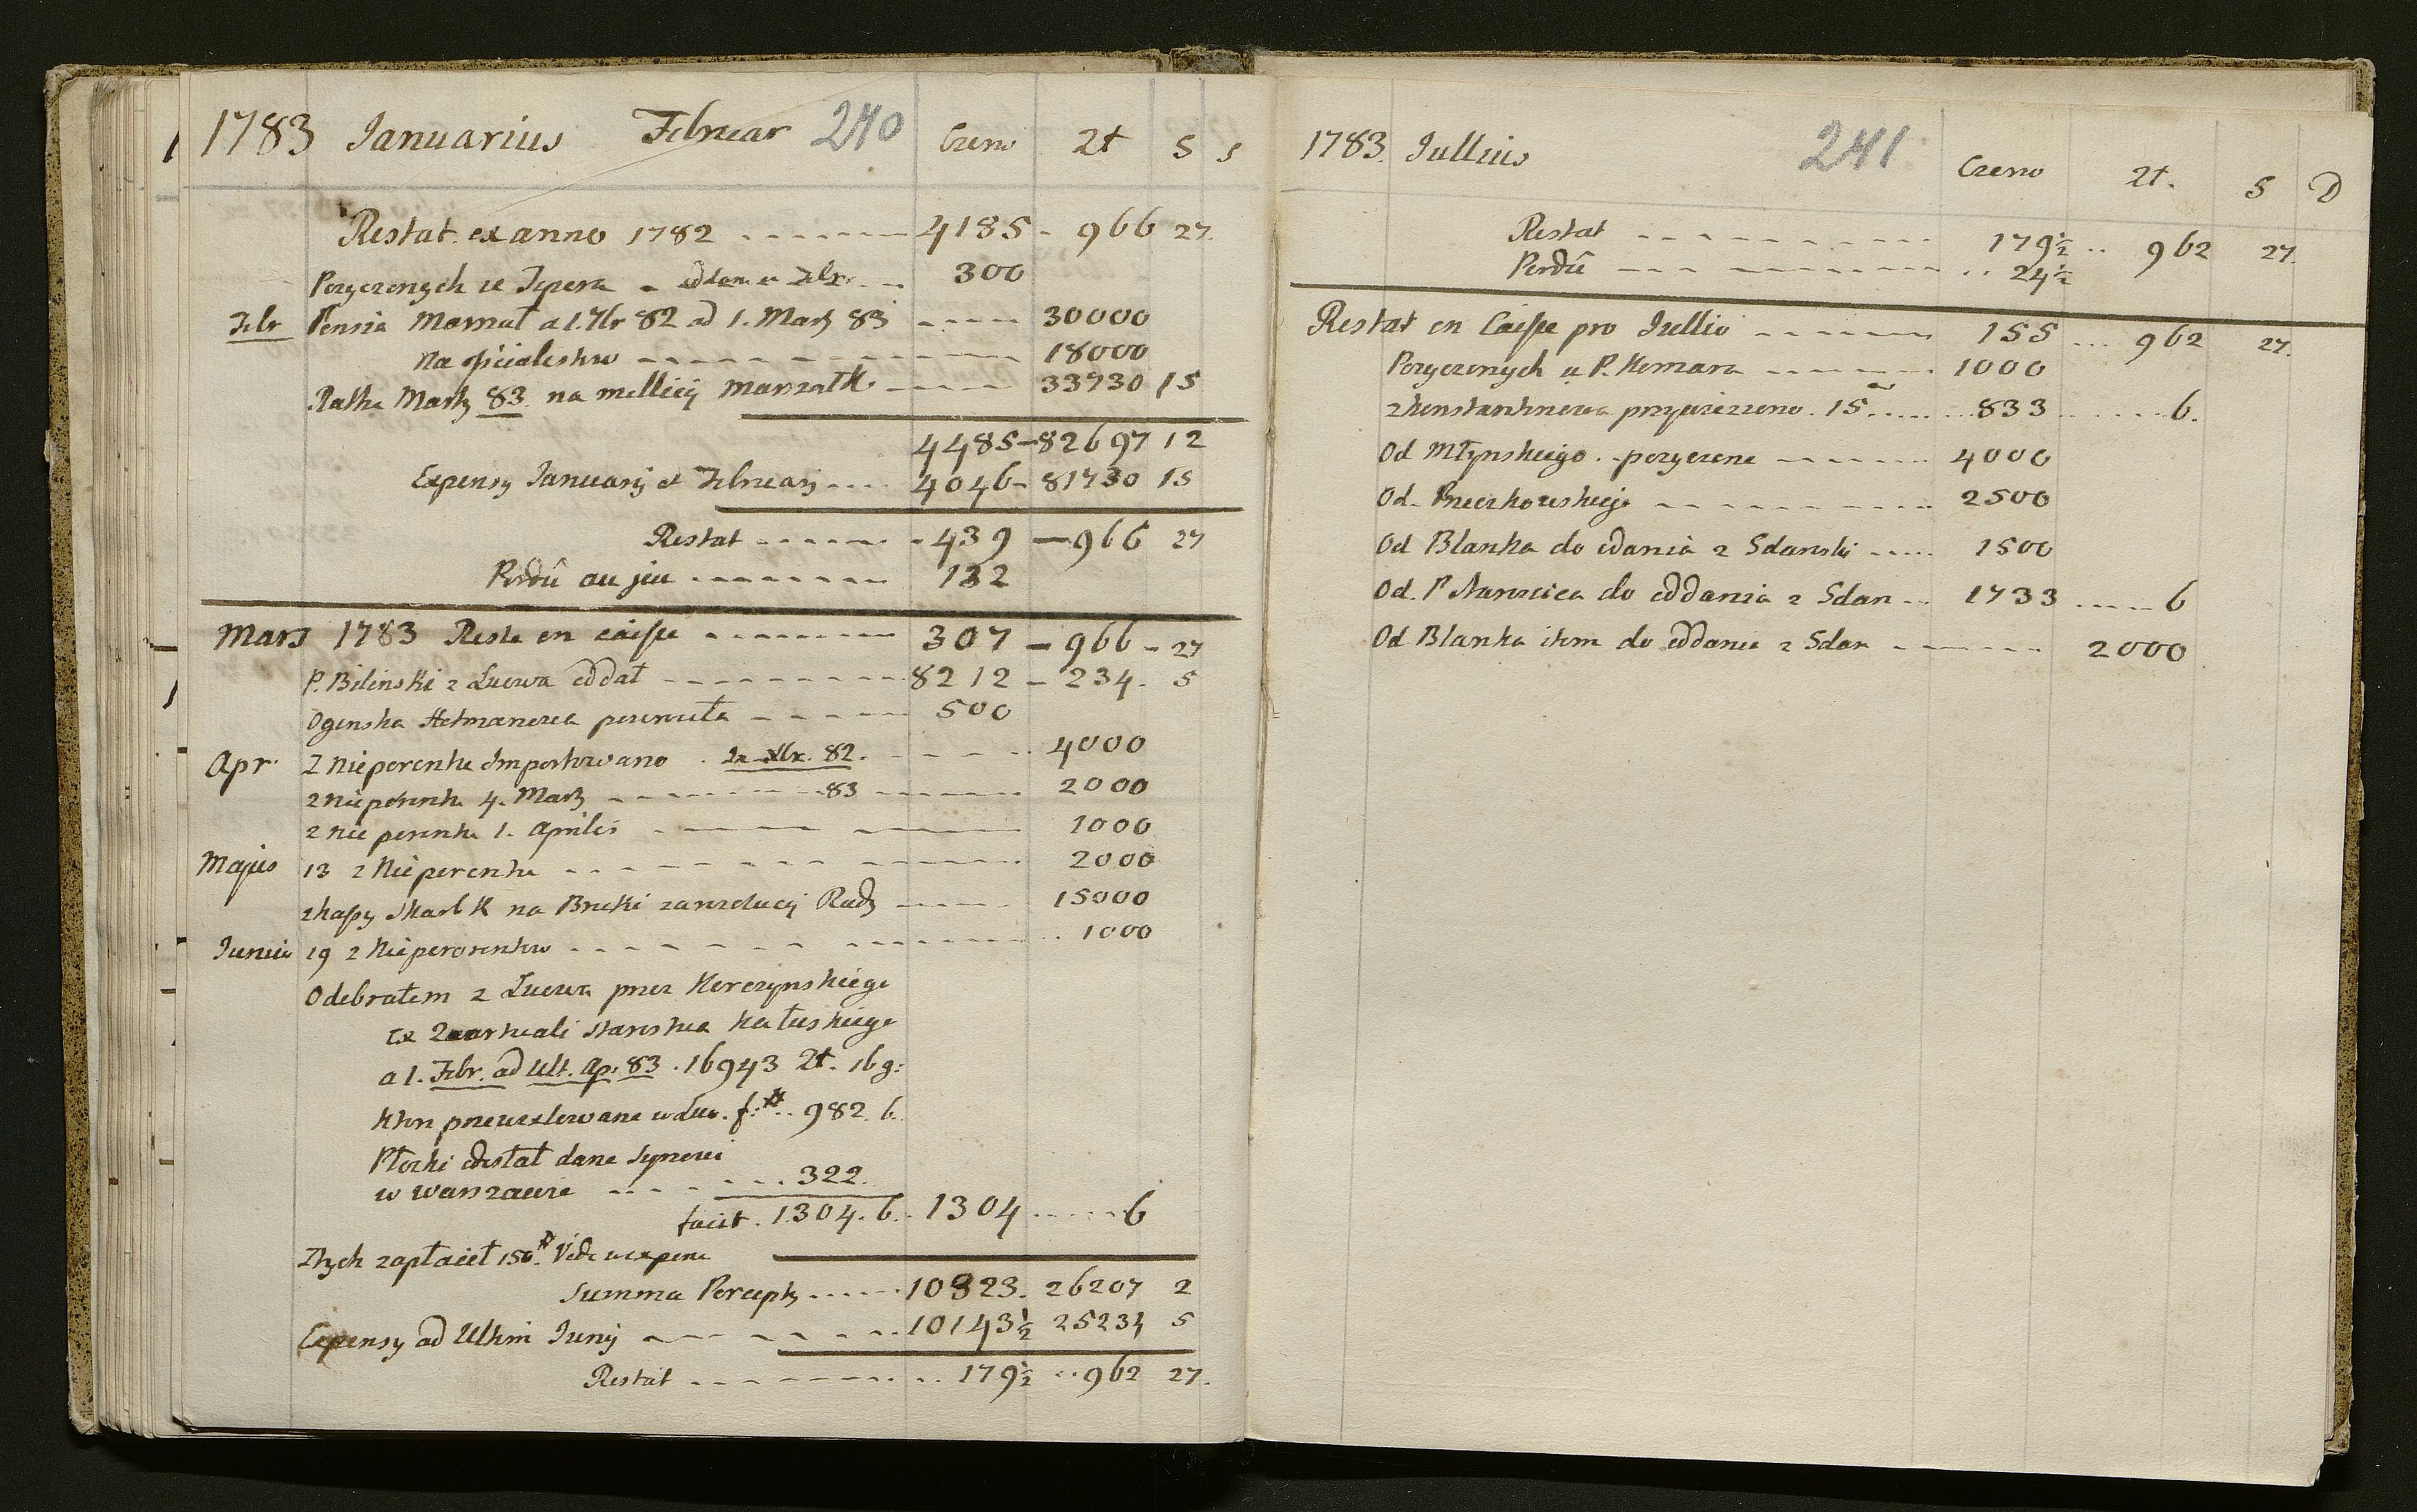 1783 Januarius Februar 240 Czerw Zt S S
Restat ex anno 1782 4185 - 966 27.
Pozyczonych u Tepera - oddane w Febr. 300
Febr Pensia Marszał a 1. 7br 82 ad 1. Martz 83 30000
na oficialistow 18000
Ratha Martz 83. na millicij marszałk. 33730 15
4485 - 82697 12
Expensy Januarij et Februarij 4046 - 81730 15
Restat 439 - 966 27
Perdû au jeu 132
Mars 1783 Reste en caisse 307 - 966 - 27
P. Bilinski z Lwowa oddał 8212 - 234. 5
Oginska Hetmanowa powrociła 500
Apr. Z Nieporentu Importowano . In Xbr. 82. 4000
z nieporentu 4. Martz 83 2000
z nieporentu 1. Aprilis 1000
Majus 13 z Nieporentu 2000
z kassy skarb K na Bruki z arezolucij Rady 15000
Junius 19 z Nieporentow 1000
Odebrałem z Lwowa przez Korczynskiego
ex Quartuali starostwa Kałuskiego
a 1. Febr. ad Ult. Ap. 83 . 16943 Zt. 16 g:
Ktore przewexlowane w Lwo. f: # .. 982. 6.
Płocki odesłał dane synowi
w Warszawie 322.
facit . 1304. 6. 1304 6
Ztych zapłacił 150 # Vide w expens
Summa Percepty 10323. 26207 2
Expensy ad Ultim Junij 10143½ 25234 5
Restat 179½ 962 27.
1783. Jullius 241 Czerwo Zt. S D
Restat 179½ 962 27.
Perdû 24½
Restat en Caisse pro Jullio 155 962 27.
Pozyczonych u P. Komara 1000
z Konstantinowa przywieziono . 15 833 6.
Od Młynskiego . pozyczone 4000
Od 2500
Od Blanka do odania z Gdanski 1500
Od. P do oddania z Gdan 1733 6
Od Blanka item do oddania z Gdan 2000